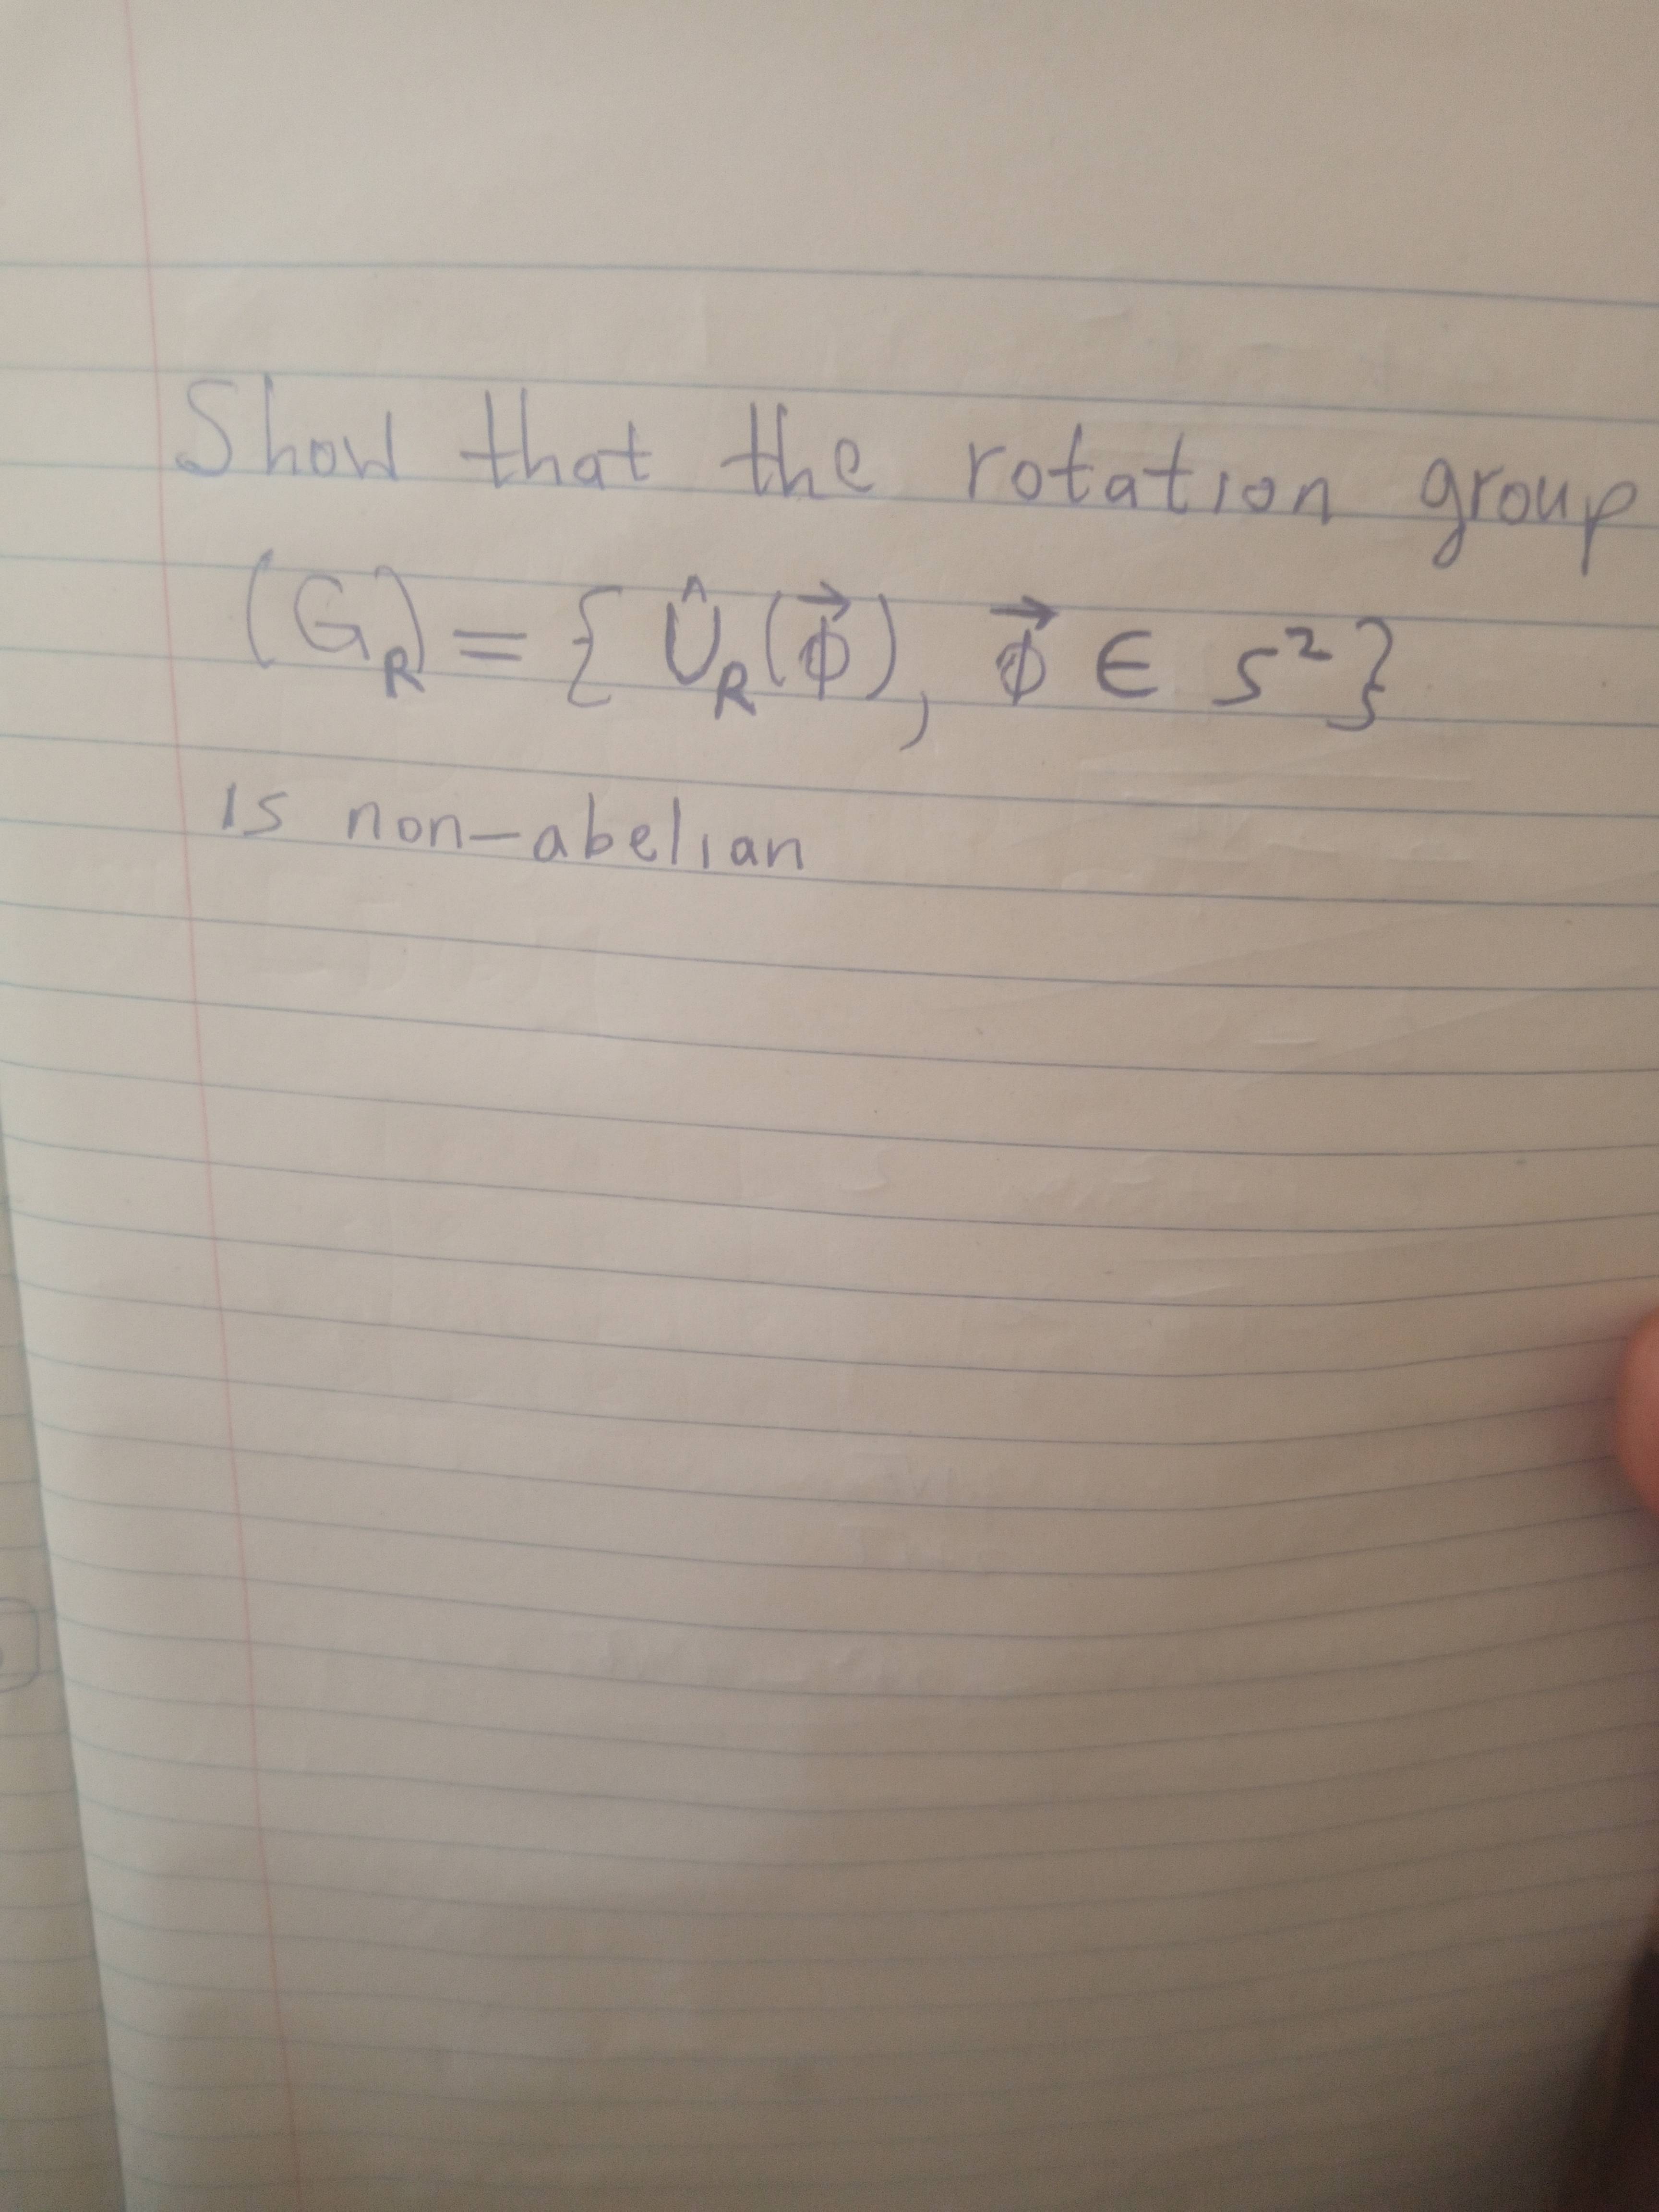 Show that the rotation group
(G_R) = { Û_R(ϕ⃗), ϕ⃗ ∈ S² }
is non-abelian